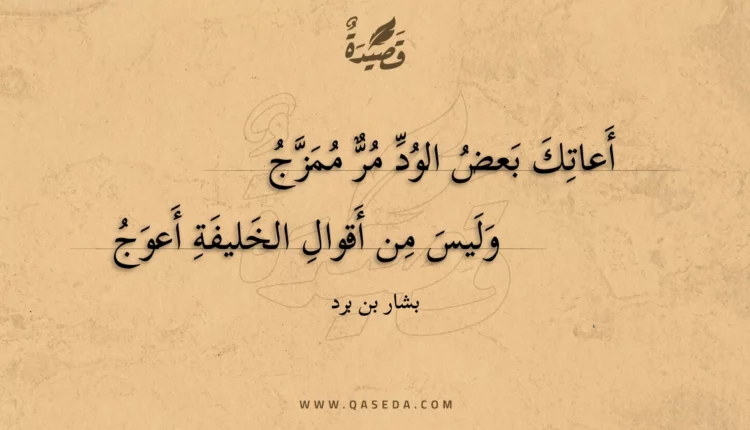 قَصِيْدَةٌ
أَعاتِكَ بَعضُ الوُدِّ مُرٌّ مُمَزَّجُ
وَلَيسَ مِن أَقوالِ الخَليفَةِ أَعوَجُ
بشار بن برد
WWW.QASEDA.COM